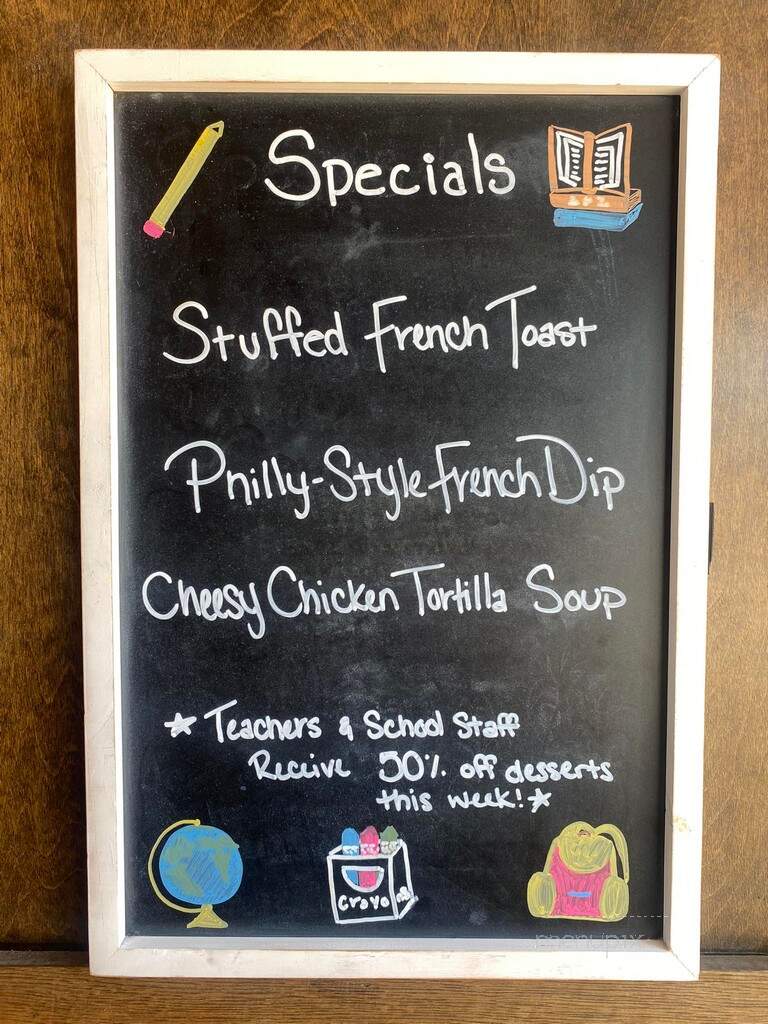 Specials
Stuffed French Toast
Philly-Style French Dip
Cheesy Chicken Tortilla Soup
* Teachers & School Staff
Receive 50% off desserts
this week! *
crayons